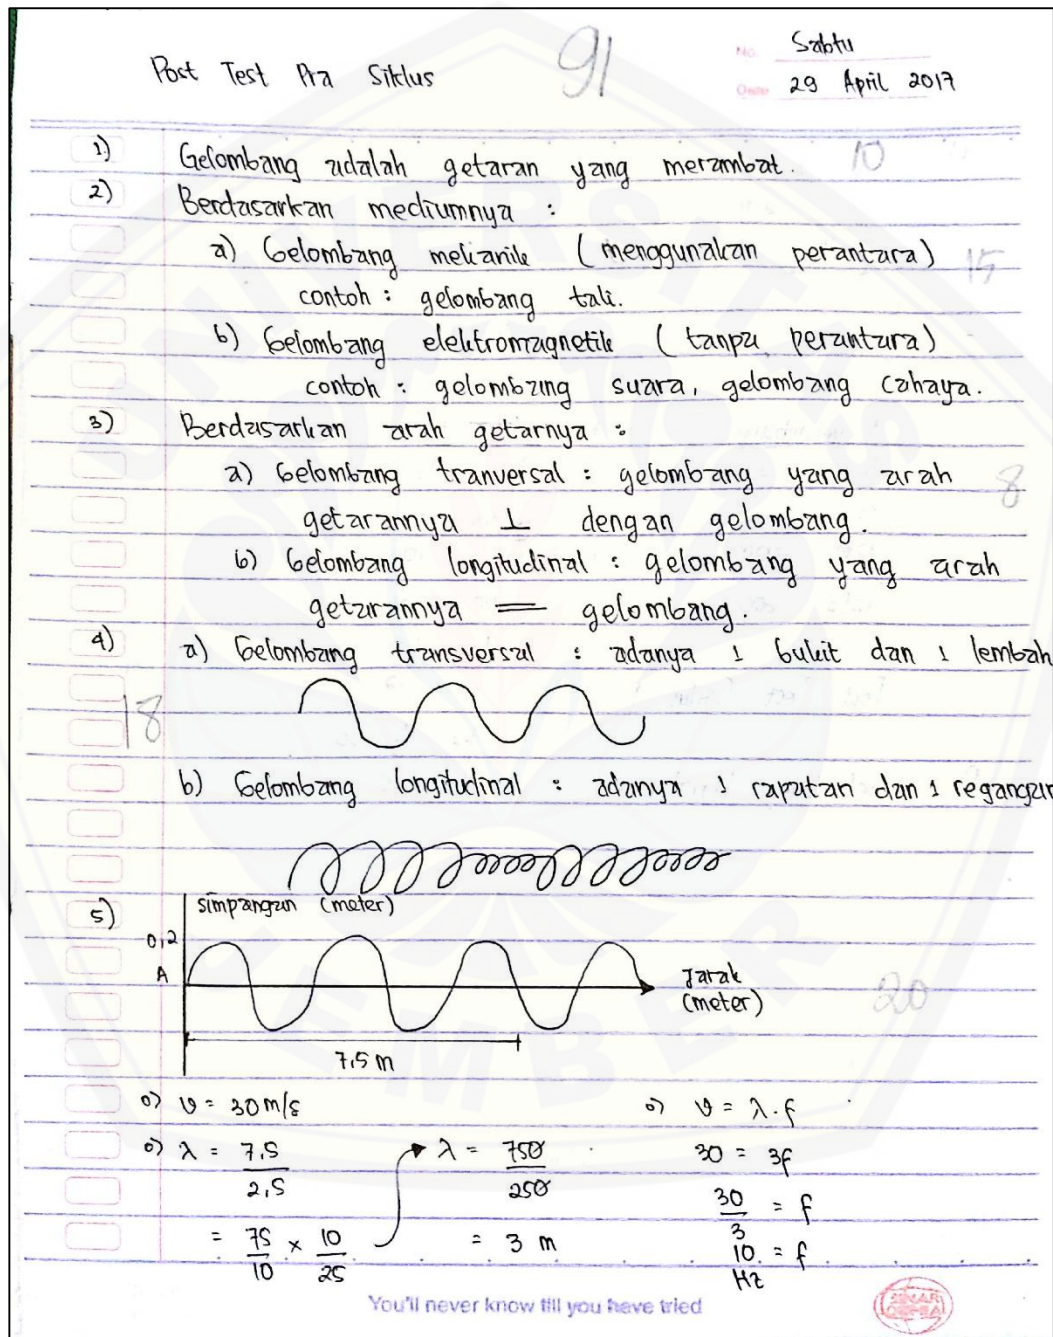 Post Test Pra Siklus
91
No. Sabtu
Date 29 April 2017
1) Gelombang adalah getaran yang merambat. 10
2) Berdasarkan mediumnya :
a) Gelombang mekanik (menggunakan perantara) 15
contoh : gelombang tali.
b) Gelombang elektromagnetik (tanpa perantara)
contoh : gelombang suara, gelombang cahaya.
3) Berdasarkan arah getarnya :
a) Gelombang tranversal : gelombang yang arah 8
getarannya ⊥ dengan gelombang.
b) Gelombang longitudinal : gelombang yang arah
getarannya = gelombang.
4) a) Gelombang transversal : adanya 1 bukit dan 1 lembah
18
b) Gelombang longitudinal : adanya 1 rapatan dan 1 regangan
5) simpangan (meter)
0,2
A
Jarak
(meter)
20
7,5 m
o) v = 30 m/s
o) v = λ . f
o) λ = 7,5/2,5
λ = 750/250
30 = 3f
30/3 = f
= 75/10 × 10/25
= 3 m
10 = f
Hz
You'll never know till you have tried
SINAR DUNIA
UNIVERSITAS JEMBER